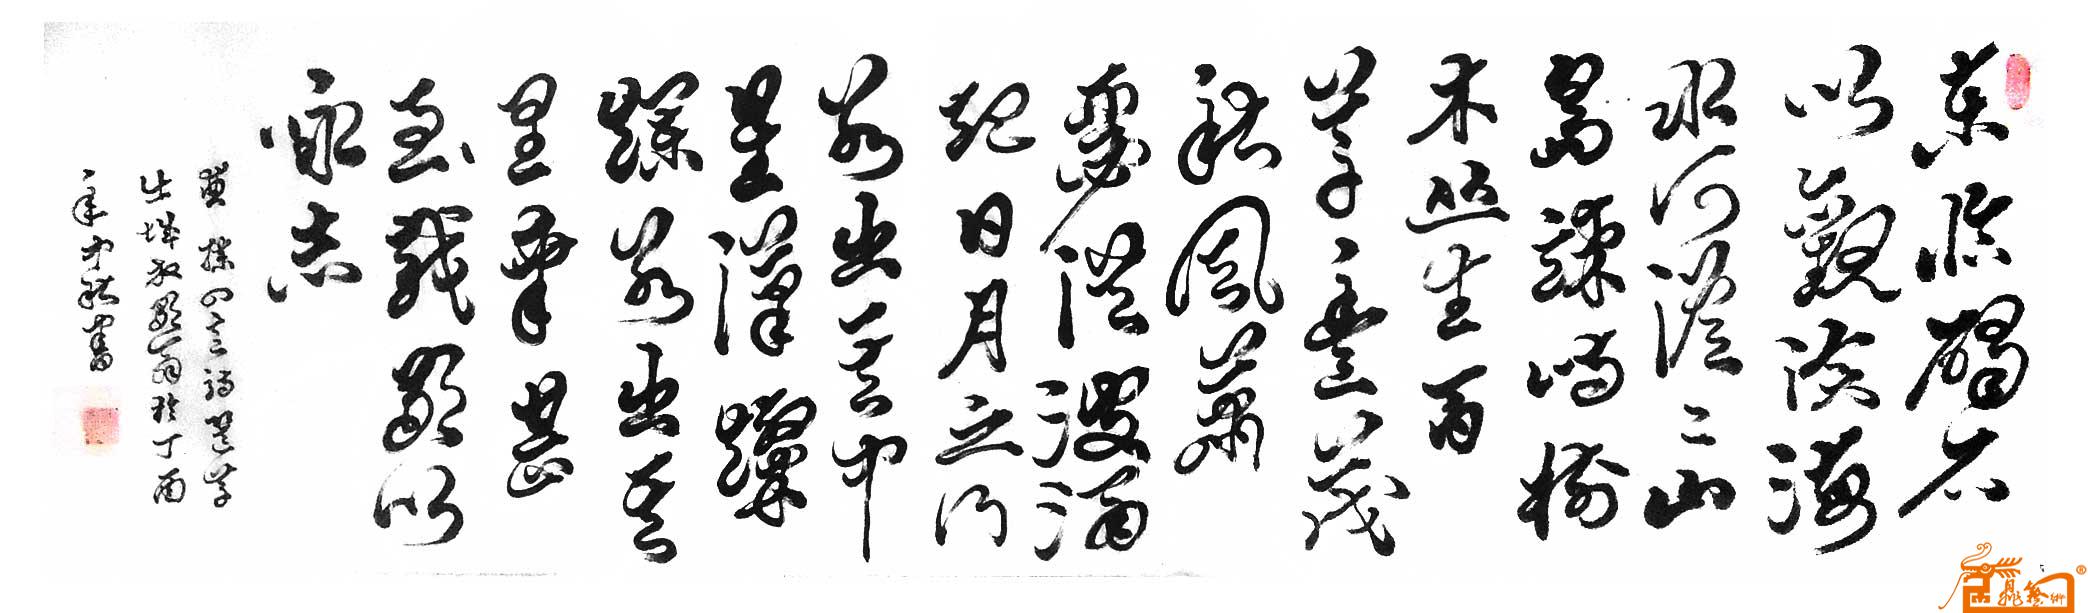 東臨碣石
以觀滄海
水何澹〻山
島竦峙樹
木叢生百
草豐茂
秋風蕭
瑟洪波涌
起日月之行
若出其中
星漢燦
爛若出其
里幸甚
至哉歌以
詠志
曹操四言詩
於丁酉
年中秋書